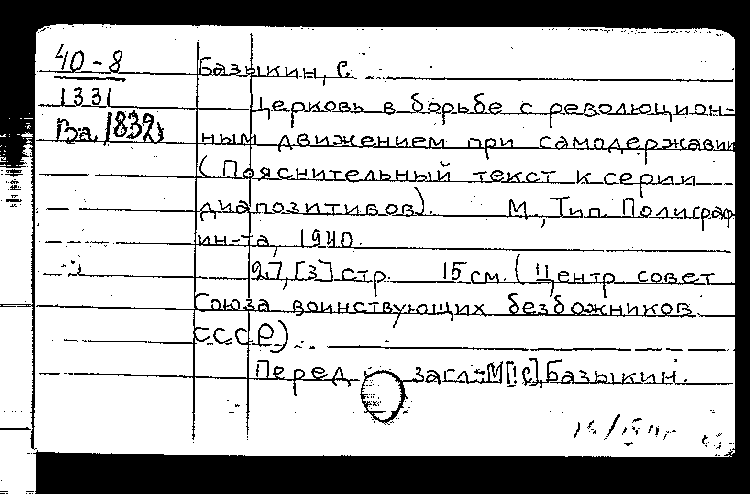 40-8
1331
Базыкин, С.
Церковь в борьбе с революцион-
ным движением при самодержавии
(Пояснительный текст к серии
диапозитивов). М., Тип. Полиграф
ин-та, 1940.
27, [3] стр. 15 см. (Центр совет
Союза воинствующих безбожников
СССР).
Перед загл: М[!С], Базыкин.